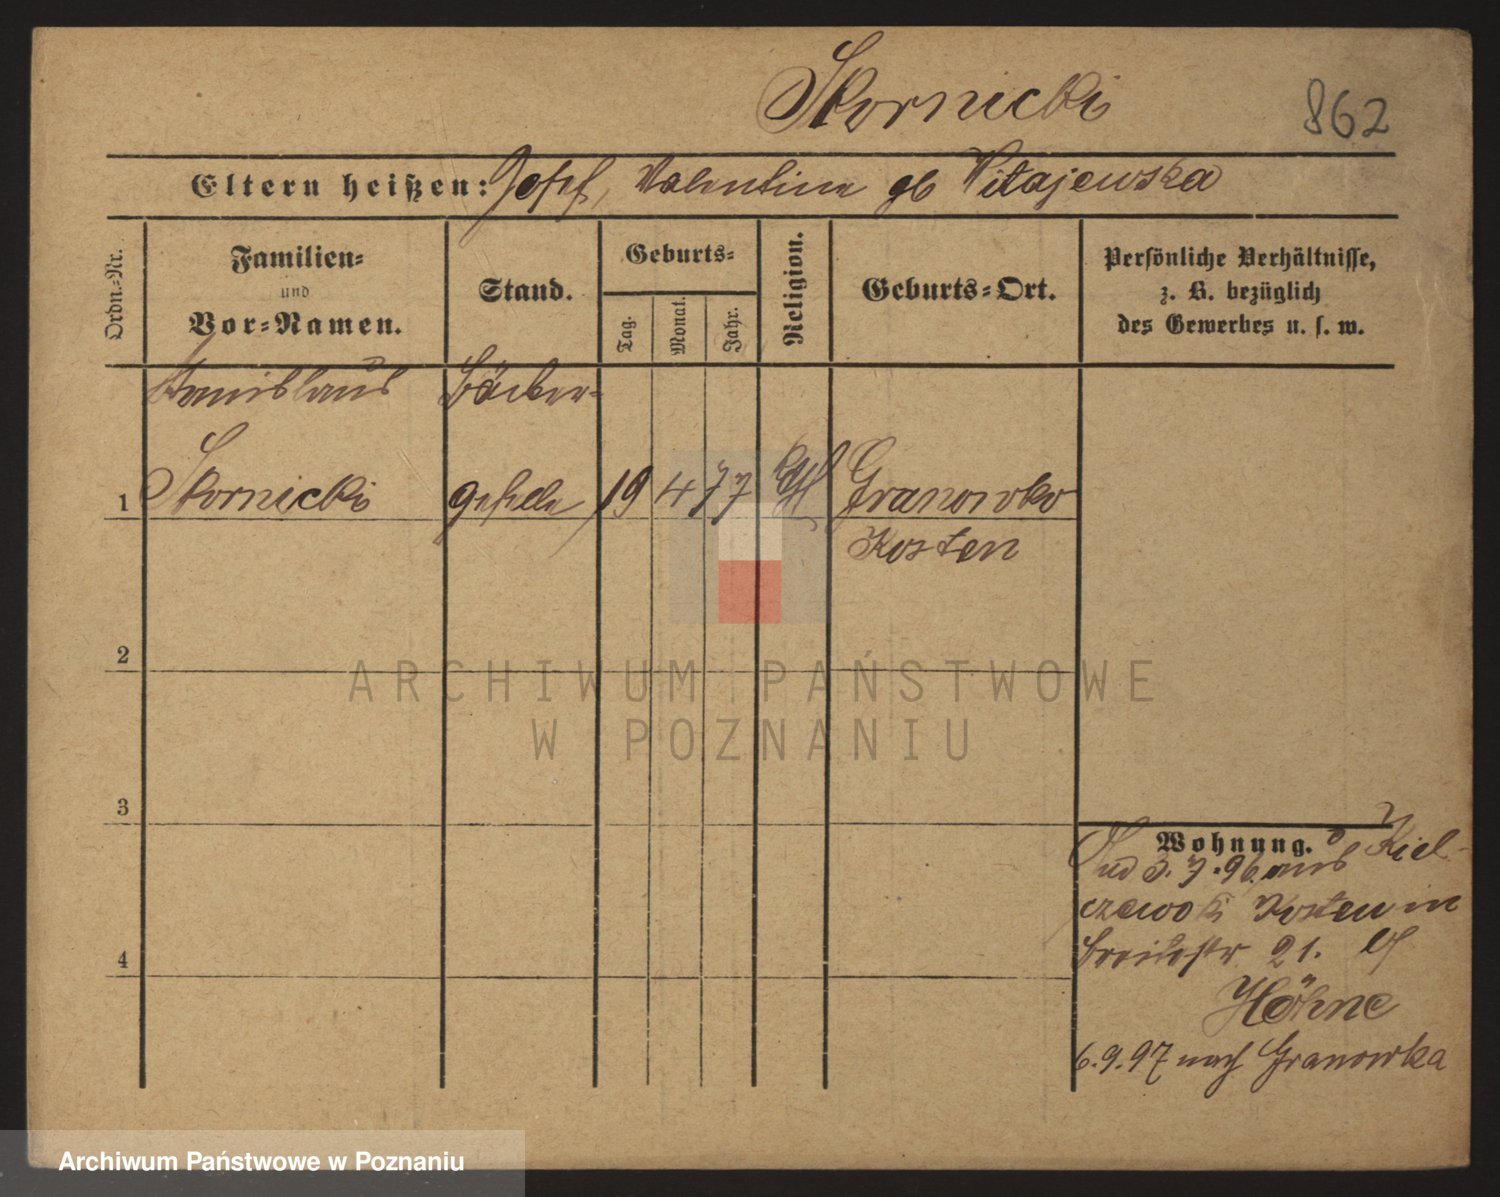 Skornicki
862
Eltern heißen: Josef, Valentine gb Witajewska
Ordn.-Nr.
Familien-
und
Vor-Namen.
Stand.
Geburts-
Tag.
Monat.
Jahr.
Religion.
Geburts-Ort.
Persönliche Verhältnisse,
z. B. bezüglich
des Gewerbes u. s. w.
Stanislaus Bäcker-
1 Skornicki geselle 19 4 77 kth Granowko
Kosten
2
ARCHIWUM PAŃSTWOWE
W POZNANIU
3
Wohnung.
3.7.96 aus Kiel-
czewo Kosten in
Breitestr 21. bei
Höhne
4
6.9.97 nach Granowka
Archiwum Państwowe w Poznaniu